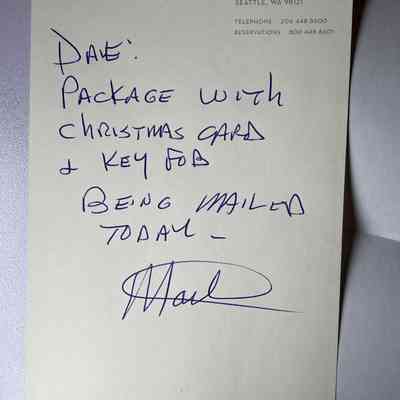 SEATTLE, WA 98121
TELEPHONE 206 448 8600
RESERVATIONS 800 448 8601
DAVE:
PACKAGE WITH
CHRISTMAS CARD
& KEY FOB
BEING MAILED
TODAY –
Mark